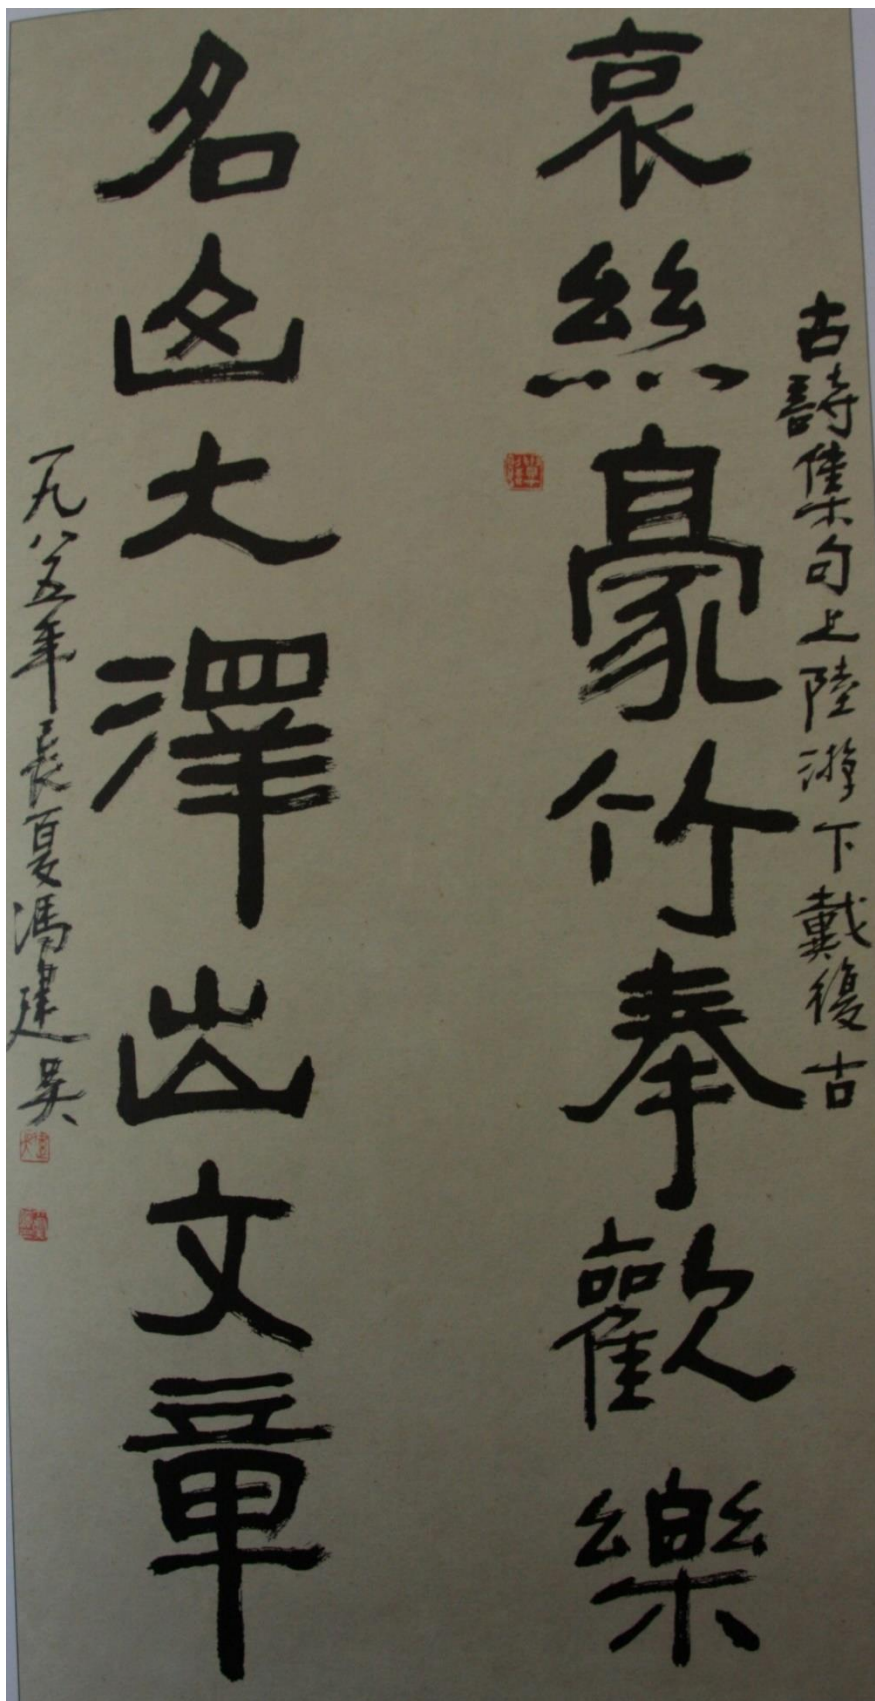 古詩集句上陸游下戴復古
哀絲豪竹奉歡樂
名山大澤出文章
一九八五年長夏馮建吳